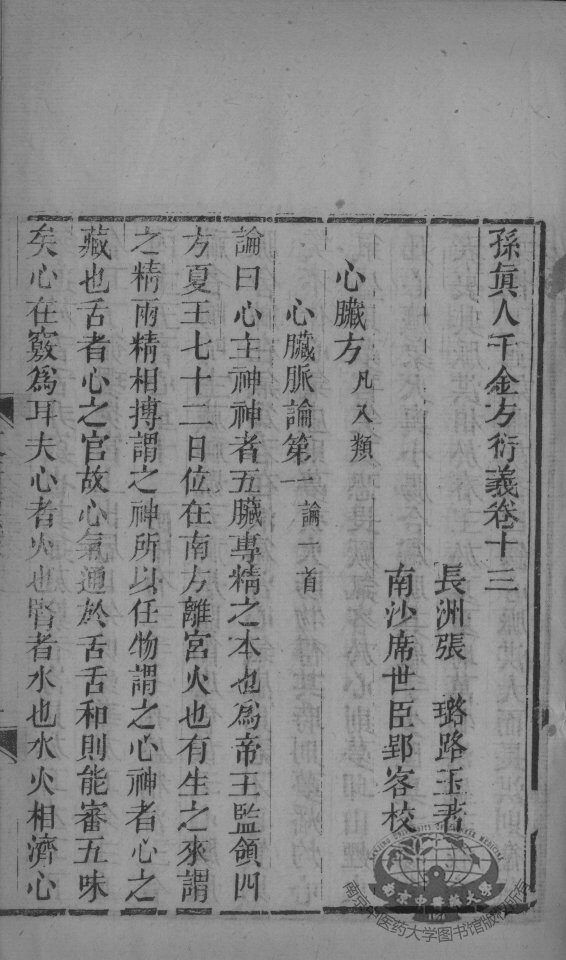 孫眞人千金方衍義卷十三
長洲張　璐路玉著
南沙席世臣郢客校
心臟方凡八類
心臟脈論第一論一首
論曰心主神神者五臟專精之本也爲帝王監領四
方夏王七十二日位在南方離宮火也有生之來謂
之精兩精相搏謂之神所以任物謂之心神者心之
藏也舌者心之官故心氣通於舌舌和則能審五味
矣心在竅爲耳夫心者火也腎者水也水火相濟心
南京中醫藥大學
1954
南京中医药大学图书馆版权所有